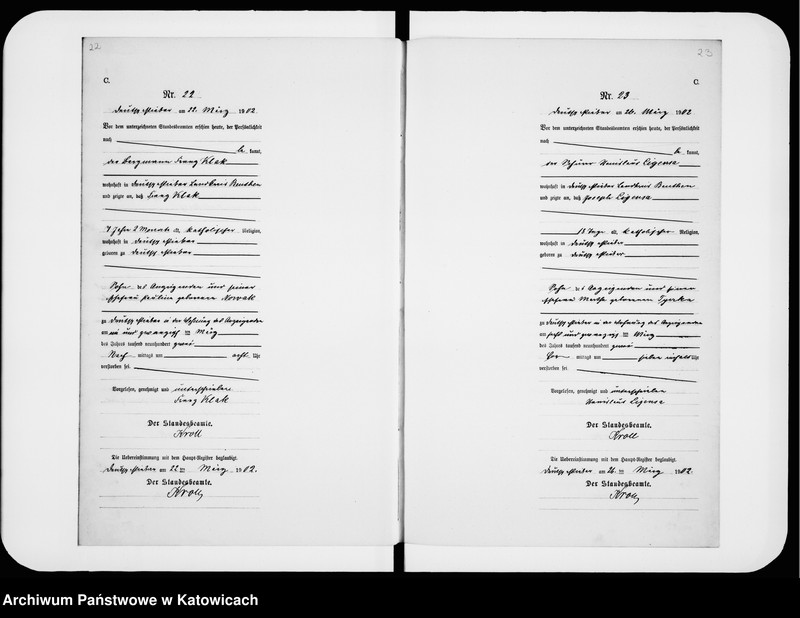 22
C.
Nr. 22
Deutsch Piekar am 22. März 1902
Vor dem unterzeichneten Standesbeamten erschien heute, der Persönlichkeit
nach
be kannt,
der Bergmann Franz Klak
wohnhaft in Deutsch Piekar Landkreis Beuthen
und zeigte an, daß Franz Klak
Jahr 2 Monate alt, katholischer Religion,
wohnhaft in Deutsch Piekar
geboren zu Deutsch Piekar
Sohn des Anzeigenden und seiner
Ehefrau Pauline geborenen Nowak
zu Deutsch Piekar in der Wohnung des Anzeigenden
am ein und zwanzigsten März
des Jahres tausend neunhundert zwei
Nach mittags um acht Uhr
verstorben sei.
Vorgelesen, genehmigt und unterschrieben
Franz Klak
Der Standesbeamte.
Kroll
Die Uebereinstimmung mit dem Haupt-Register beglaubigt.
Deutsch Piekar am 22ten März 1902.
Der Standesbeamte.
Kroll
23
C.
Nr. 23
Deutsch Piekar am 26. März 1902
Vor dem unterzeichneten Standesbeamten erschien heute, der Persönlichkeit
nach
be kannt,
der Stanislaus Cogensa
wohnhaft in Deutsch Piekar Landkreis Beuthen
und zeigte an, daß Joseph
18 Tage alt, katholischer Religion,
wohnhaft in Deutsch Piekar
geboren zu Deutsch Piekar
Sohn des Anzeigenden und seiner
Ehefrau Martha geborenen
zu Deutsch Piekar in der Wohnung des Anzeigenden
am sechs und zwanzigsten März
des Jahres tausend neunhundert zwei
Vor mittags um sieben einhalb Uhr
verstorben sei.
Vorgelesen, genehmigt und unterschrieben
Stanislaus
Der Standesbeamte.
Kroll
Die Uebereinstimmung mit dem Haupt-Register beglaubigt.
Deutsch Piekar am 26ten März 1902.
Der Standesbeamte.
Kroll
Archiwum Państwowe w Katowicach